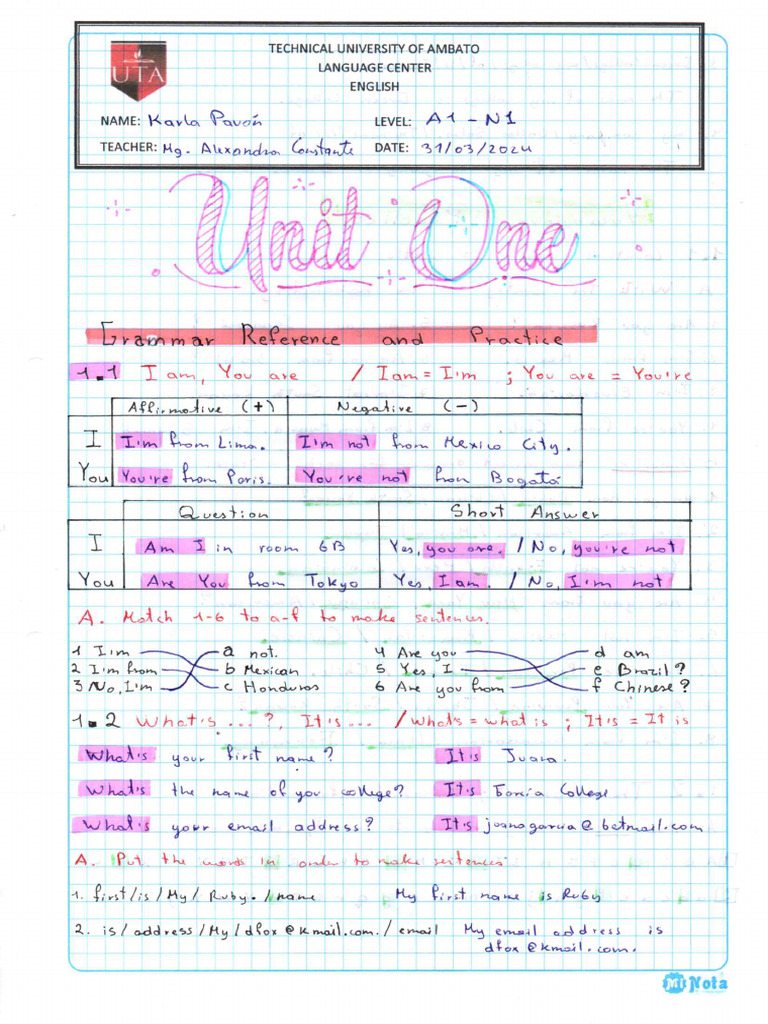 TECHNICAL UNIVERSITY OF AMBATO
LANGUAGE CENTER
ENGLISH
UTA
NAME: Karla Pavón LEVEL: A1 - N1
TEACHER: Mg. Alexandra Constante DATE: 31/03/2024
Unit One
Grammar Reference and Practice
1.1 I am, You are / I am = I'm ; You are = You're
Affirmative (+) Negative (-)
I I'm from Lima. I'm not from Mexico City.
You You're from Paris. You're not from Bogotá
Question Short Answer
I Am I in room 6B Yes, you are. / No, you're not
You Are You from Tokyo Yes, I am. / No, I'm not
A. Match 1-6 to a-f to make sentences.
1 I'm a not. 4 Are you d am
2 I'm from b Mexican 5 Yes, I e Brazil?
3 No, I'm c Honduras 6 Are you from f Chinese?
1.2 What's ...?, It's ... / What's = what is ; It's = It is
What's your first name? It's Juana.
What's the name of you college? It's García College
What's your email address? It's juanagarcia@betmail.com
A. Put the words in order to make sentences
1. first/is/My/Ruby./name My first name is Ruby
2. is/address/My/dfox@kmail.com./email My email address is
dfox@kmail.com.
Mi Nota